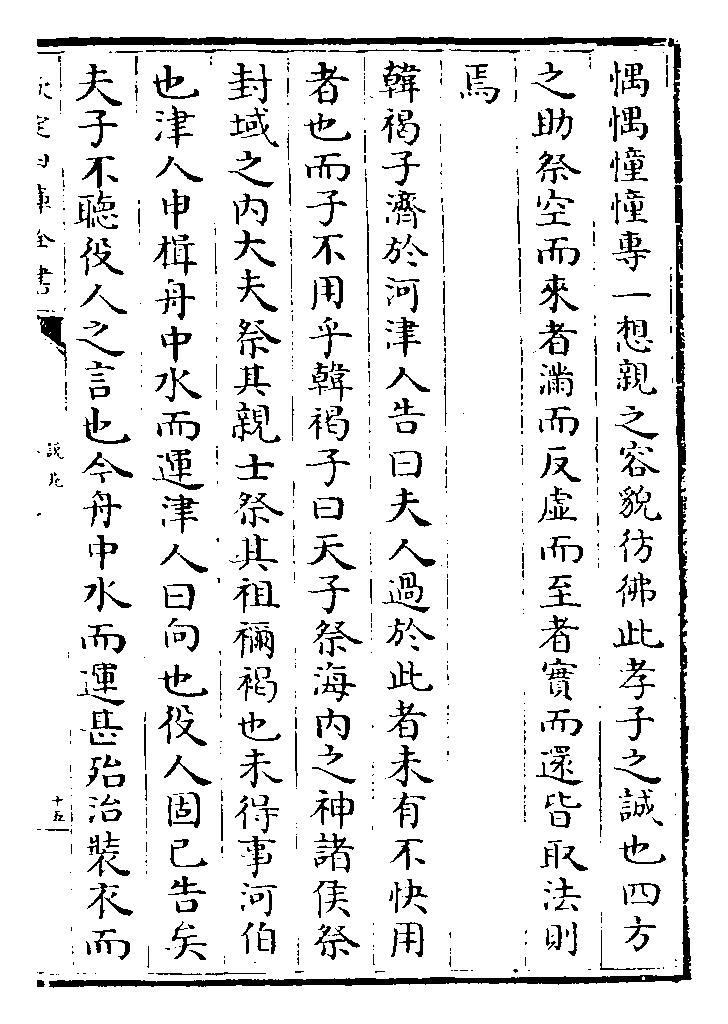 愚愚憧憧專一想親之容貌彷彿此孝子之誠也四方
之助祭空而來者滿而反虛而至者實而還皆取法則
焉
韓褐子濟於河津人告曰夫人過於此者未有不快用
者也而子不用乎韓褐子曰天子祭海内之神諸侯祭
封域之内大夫祭其親士祭其祖禰褐也未得事河伯
也津人申楫舟中水而運津人曰向也役人固已告矣
夫子不聽役人之言也今舟中水而運甚殆治裝衣而
欽定四庫全書
説苑
十五